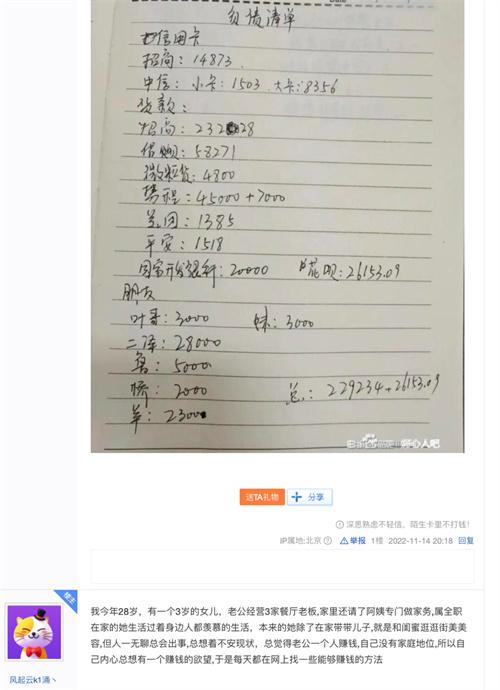 负债清单
信用卡
招商：14873
中信：小卡：1503 大卡：8356
贷款：
招商：23228
借呗：58271
微粒贷：4800
携程：45000+7000
美团：1385
平安：1518
国家开发银行：20000 花呗：26153.09
朋友
叶哥：3000 妹：3000
二泽：28000
鲁：5000
桥：2000
羊：2300 总：229234+26153.09
送TA礼物 分享
深思熟虑不轻信，陌生卡里不打钱！
IP属地:北京 举报 1楼 2022-11-14 20:18 回复
楼主
我今年28岁，有一个3岁的女儿，老公经营3家餐厅老板,家里还请了阿姨专门做家务,属全职
在家的她生活过着身边人都羡慕的生活，本来的她除了在家带带儿子,就是和闺蜜逛逛街美美
容,但人一无聊总会出事,总想着不安现状，总觉得老公一个人赚钱,自己没有家庭地位,所以自
己内心总想有一个赚钱的欲望,于是每天都在网上找一些能够赚钱的方法
风起云k1涌